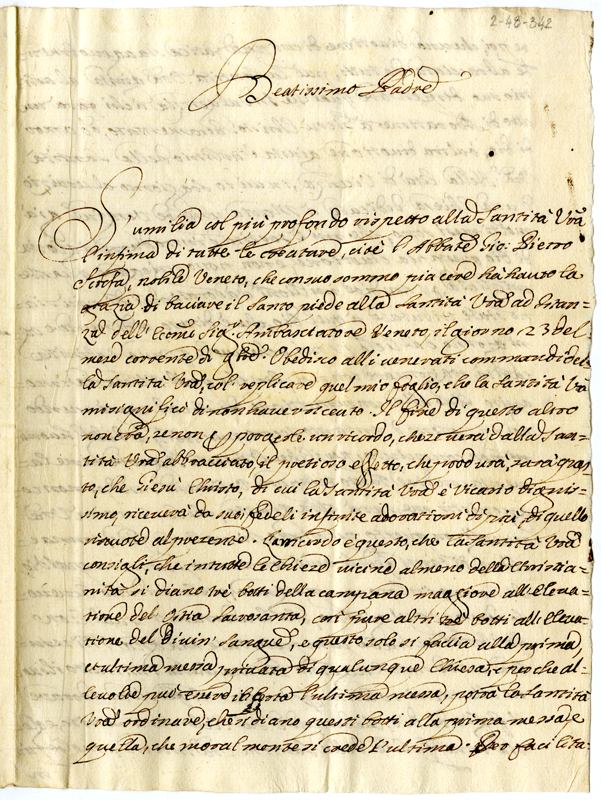 2-48-342
Beatissimo Padre
S'umilia col più profondo rispetto alla Santità Vra
l'infima di tutte le creature, cioè l'Abbate Gio: Pietro
nobile Veneto, che con suo sommo piacere ha hauto la
grazia di baciare il Santo piede alla Santità Vra ad istan=
za dell' Eccmo Sigr Ambasciatore Veneto, il giorno 23 del
mese corrente di Obedisco alli venerati commandi del=
la Santità Vra, col replicare quel mio foglio, che la Santità Vra
mi significò di non haver riceuto. Il fine di questo altro
non era, se non porgerle un ricordo, che se verrà dalla San=
tità Vra abbracciato, il prezioso effetto, che produrrà, sarà ques=
to, che Giesù Christo, di cui la Santità Vra è Vicario dignis=
simo, riceverà da suoi fedeli infinite adorationi di più di quello
riscuote al presente. Il ricordo è questo, che la Santità Vra
consigli, che in tutte le Chiese vicine almeno della Christia=
nità si diano tre botti della campana maggiore all'Eleva=
tione del Ostia sacrosanta, così pure altri tre botti all'Eleva=
tione del Divin' Sangue, e questo solo si faccia alla prima,
et ultima messa privata di qualunque Chiesa, e perche al=
le volte può essere incerta l'ultima messa, potrà la Santità
Vra ordinare, che si diano questi botti alla prima messa, e
quella, che moralmente si crede l'ultima. Per facilita=